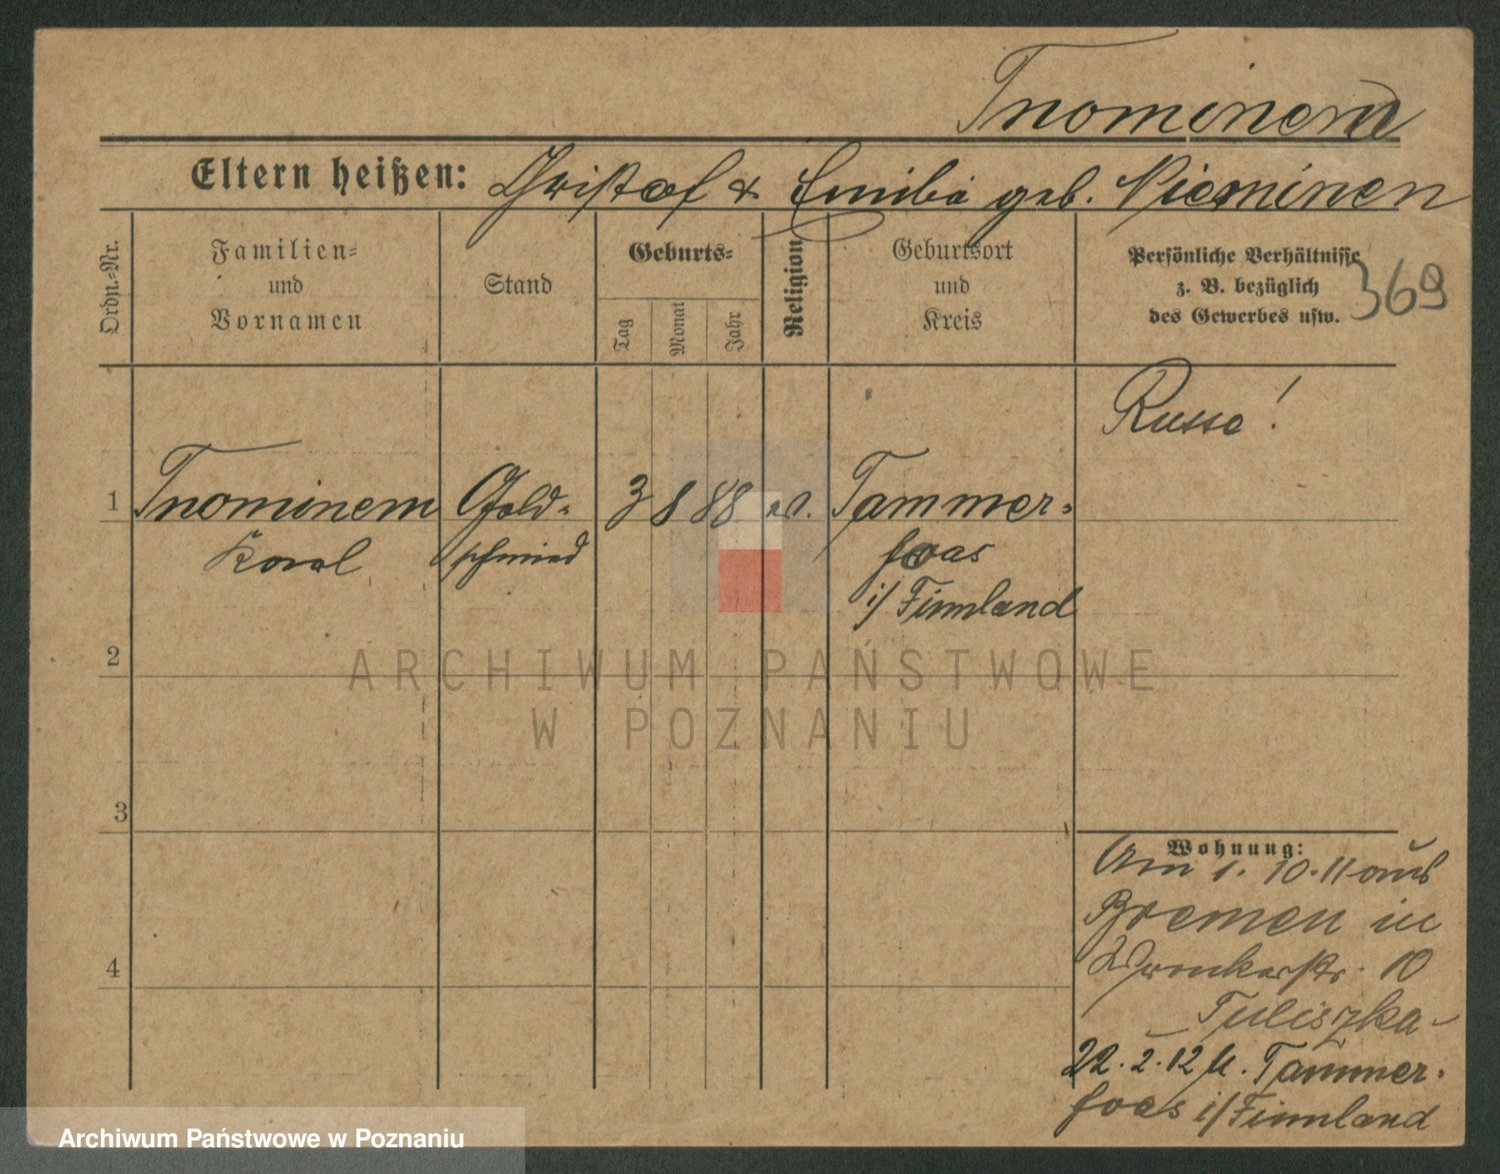 Tnominem
Eltern heißen: Christof & Emilie geb. Nieminen
Ordn.-Nr.
Familien- und Vornamen
Stand
Geburts-
Tag
Monat
Jahr
Religion
Geburtsort und Kreis
Persönliche Verhältnisse
z. B. bezüglich
des Gewerbes usw.
369
Russe!
1 Tnominem Gold- 3 8 88 ev. Tammer-
Karol schmied foas
i/ Finnland
2
ARCHIWUM PAŃSTWOWE
W POZNANIU
3
4
Wohnung:
Am 1. 10. 11 aus
Bremen in
Wronkerstr. 10
Tuliszka
22. 2. 12 n. Tammer-
foas i/ Finnland
Archiwum Państwowe w Poznaniu